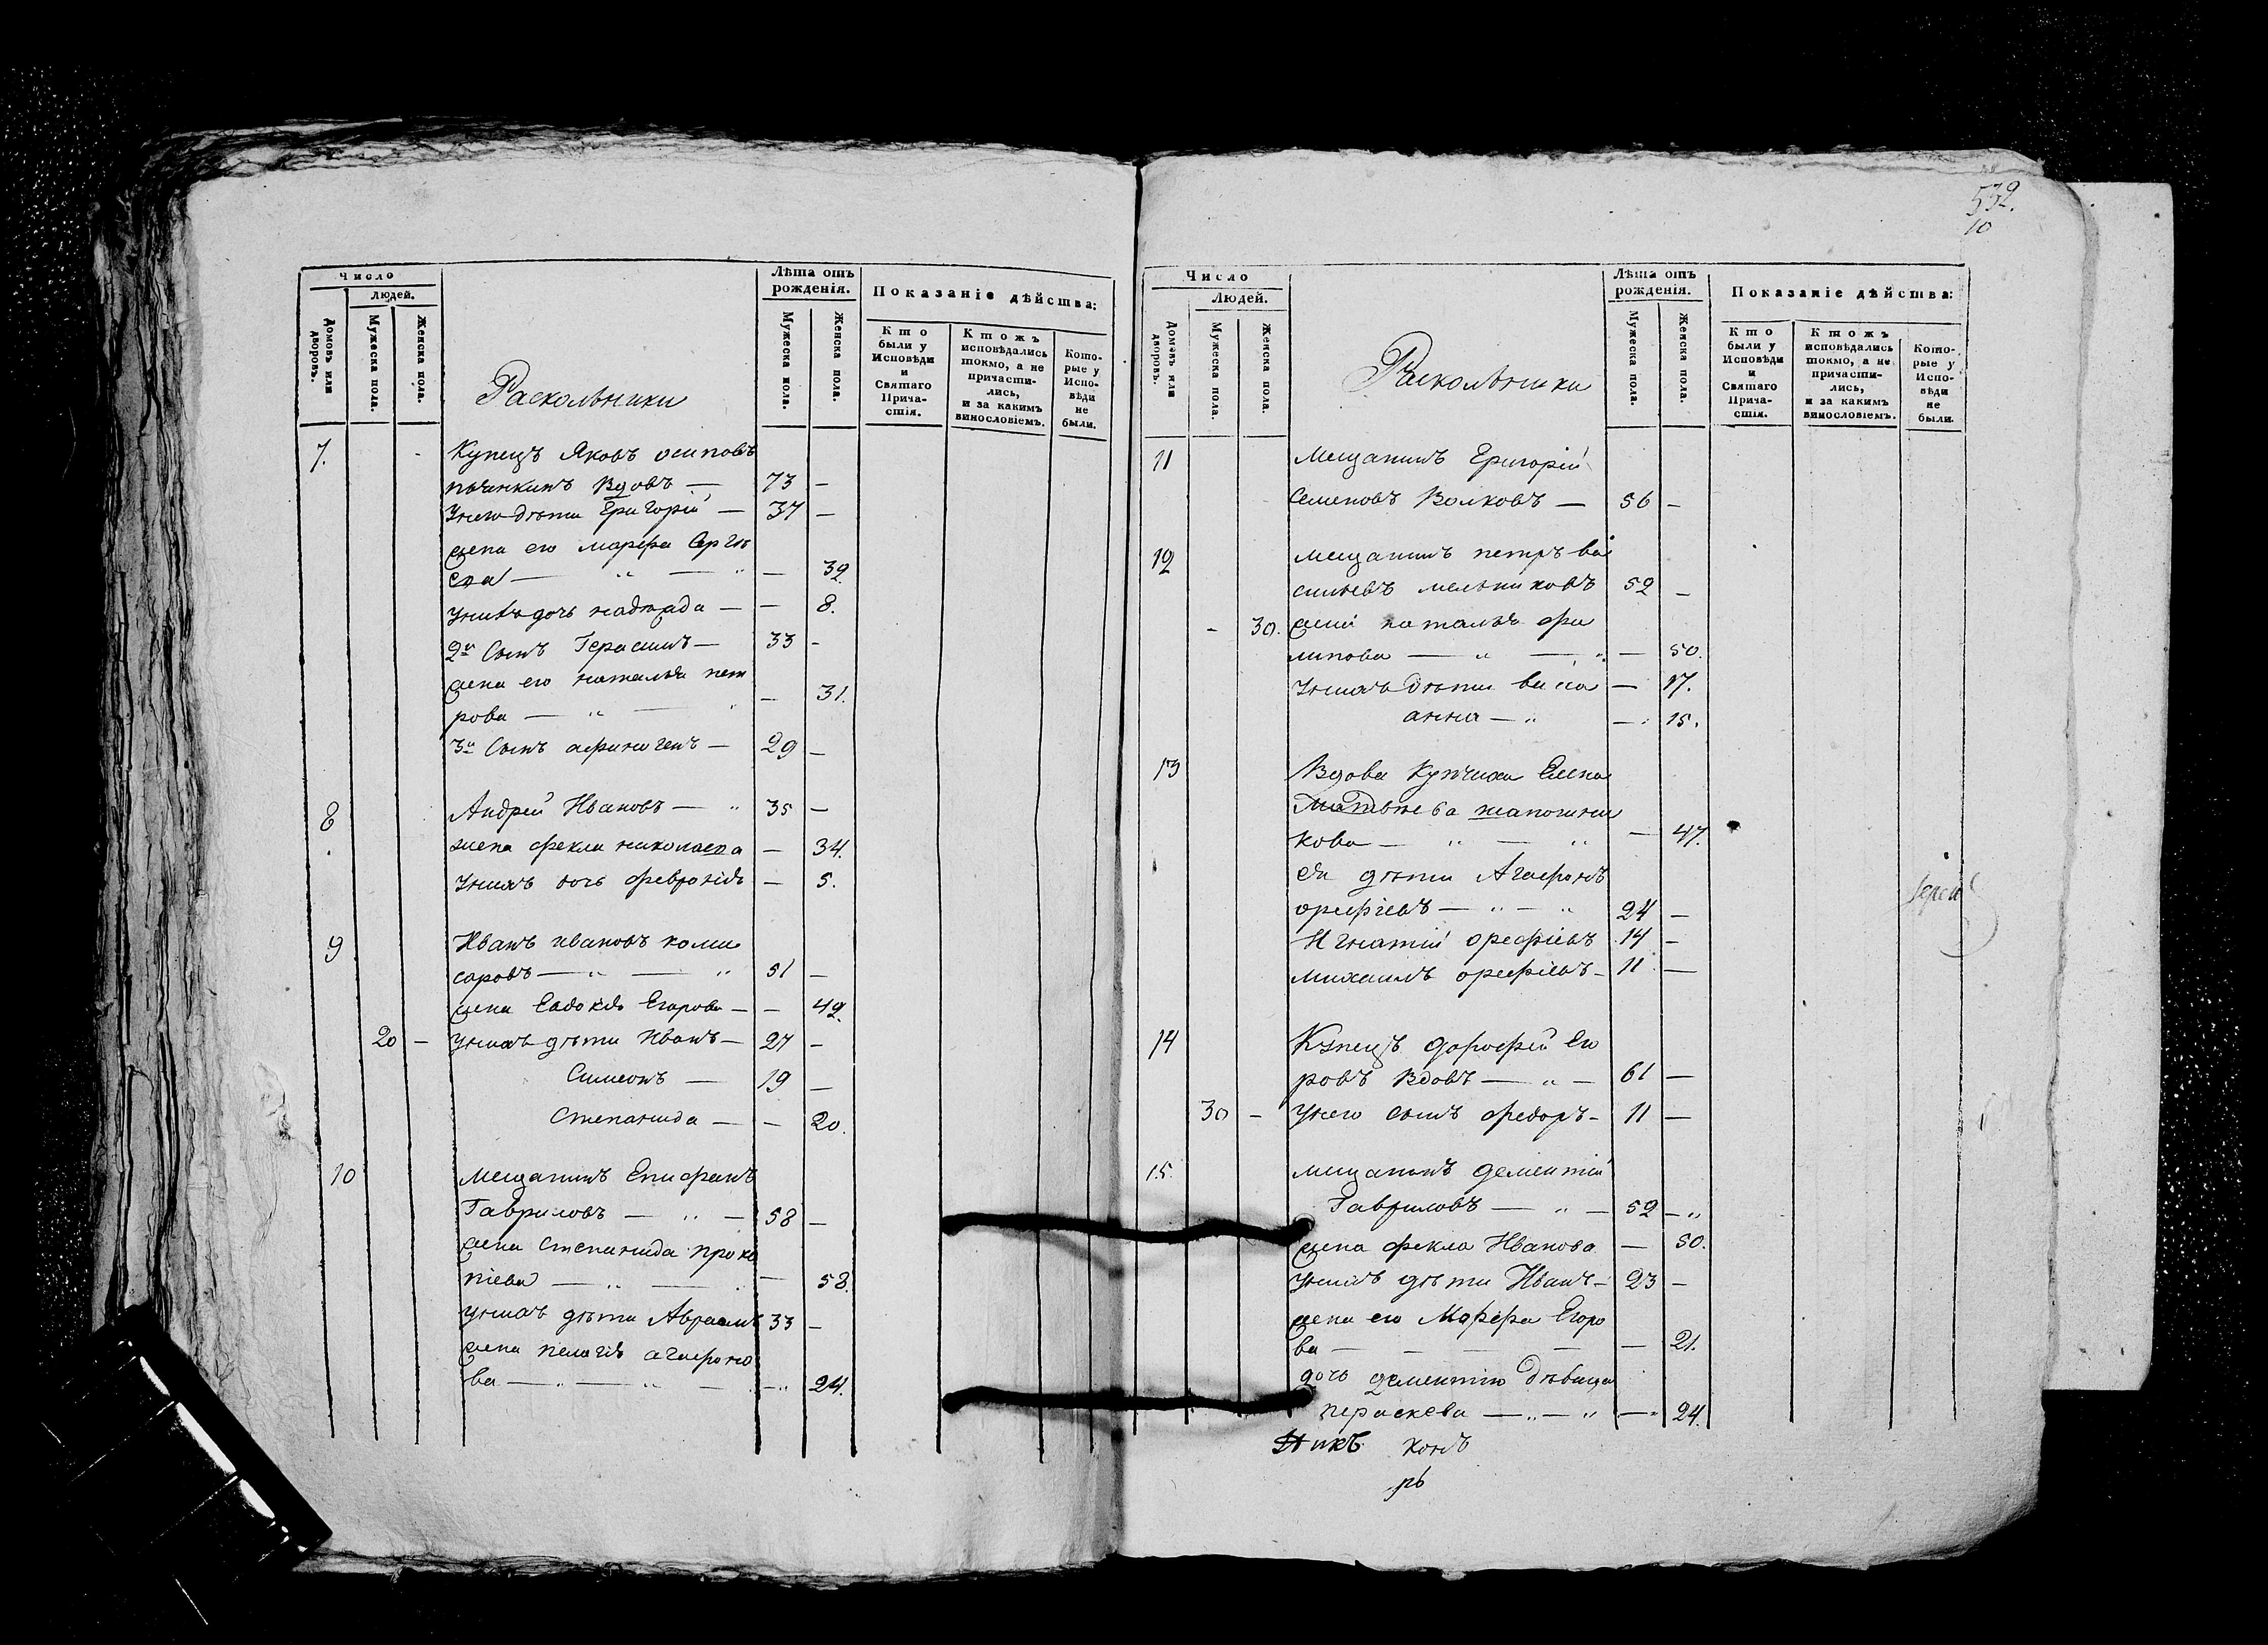 Число
Людей.
Домовъ или дворовъ.
Мужеска пола.
Женска пола.
Раскольники
Лѣта отъ рожденія.
Мужеска пола.
Женска пола.
Показаніе дѣйства:
Кто были у Исповѣди и Святаго Причастія.
Ктожъ исповѣдались токмо, а не причастились, и за какимъ винословіемъ.
Которые у Исповѣди не были.
7. Купецъ Яковъ осиповъ
пычинкинъ Вдовъ — 73 —
Унего дѣти Григорій — 37 —
жена его марфа Сергѣ
ева — „ — „ — 39.
унихъ дочь надежда — — 8.
2й Сынъ Герасимъ — 33 —
жена его наталья пет
рова — „ — „ — 31.
3й Сынъ афиногенъ — 29 —
8 Андрей Ивановъ — „ 35 —
жена фекла николаева — 34.
Унихъ дочь февронія — 5.
9 Иванъ ивановъ коми
саровъ — „ — „ 51 —
жена Евдокія Егорова — — 49.
20 — Унихъ дѣти Иванъ — 27 —
Симеонъ — 19 —
Степанида — — 20.
10 мещанинъ Епифанъ
Гавриловъ — „ — 58 —
жена Степанида проко
піева — „ — — 58.
унихъ дѣти Авраамъ 33 —
жена пелагія агафоно
ва — „ — „ — — „ 24.
532.
10
Число
Людей.
Домовъ или дворовъ.
Мужеска пола.
Женска пола.
Раскольники
Лѣта отъ рожденія.
Мужеска пола.
Женска пола.
Показаніе дѣйства:
Кто были у Исповѣди и Святаго Причастія.
Ктожъ исповѣдались токмо, а не причастились, и за какимъ винословіемъ.
Которые у Исповѣди не были.
11 Мещанинъ Григорій
Семеновъ Волковъ — 56 —
12 мещанинъ петръ ва
сильевъ мельниковъ 52 —
— 30. жена наталья фи
липова — „ — „ — 50.
Унихъ дѣти васса — 17.
анна — „ — 15.
13 Вдова Купчиха Елена
Матвѣева шапошни
кова — „ — „ — 47.
ея дѣти Агафонъ
орефіевъ — „ — „ 24 —
Игнатій орефіевъ 14 —
михаилъ орефіевъ — 11 —
14 Купецъ дорофей Его
ровъ Вдовъ — „ — 61 —
30 — Унего сынъ федоръ — 11 —
15. мещанинъ дементій
Гавриловъ — „ — 59 — „
жена фекла Иванова — 50.
Унихъ дѣти Иванъ — 23 —
жена его Марфа Егоро
ва — — — — — 21.
дочь дементію дѣвица
параскева — „ — „ — 24.